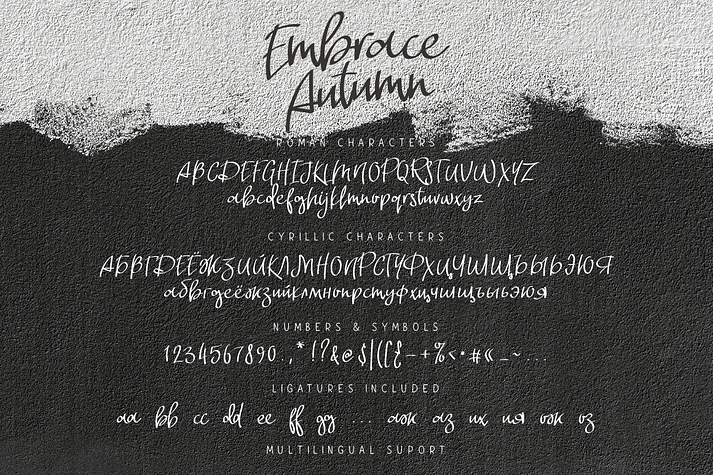 Embrace
Autumn
ROMAN CHARACTERS
ABCDEFGHIJKLMNOPQRSTUVWXYZ
abcdefghijklmnopqrstuvwxyz
CYRILLIC CHARACTERS
АБВГДЕЁЖЗИЙКЛМНОПРСТУФХЦЧШЩЪЫЬЭЮЯ
абвгдеёжзийклмнопрстуфхцчшщъыьэюя
NUMBERS & SYMBOLS
1234567890.,*!?&@$|([{—+%<•#«_~...
LIGATURES INCLUDED
aa bb cc dd ee ff gg ... аж аз их ия ож оз
MULTILINGUAL SUPORT